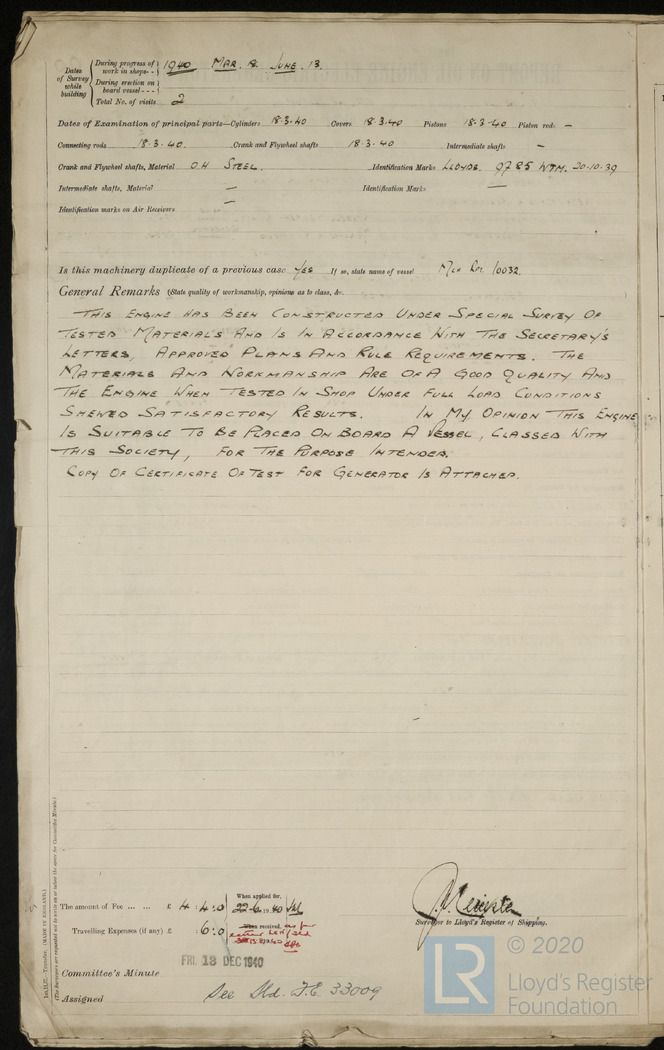 Dates of Survey while building
During progress of work in shops - - 1940 MAR. 18. JUNE. 13.
During erection on board vessel - - -
Total No. of visits 2
Dates of Examination of principal parts—Cylinders 18.3.40 Covers 18.3.40 Pistons 18.3.40 Piston rods —
Connecting rods 18.3.40. Crank and Flywheel shafts 18.3.40 Intermediate shafts —
Crank and Flywheel shafts, Material O.H STEEL. Identification Marks LLOYDS. 9785 WTM. 20.10.39
Intermediate shafts, Material — Identification Marks —
Identification marks on Air Receivers —
Is this machinery duplicate of a previous case Yes If so, state name of vessel Mch Rpt. 10032.
General Remarks (State quality of workmanship, opinions as to class, &c.)
THIS ENGINE HAS BEEN CONSTRUCTED UNDER SPECIAL SURVEY OF
TESTED MATERIALS AND IS IN ACCORDANCE WITH THE SECRETARY'S
LETTERS, APPROVED PLANS AND RULE REQUIREMENTS. THE
MATERIALS AND WORKMANSHIP ARE OF A GOOD QUALITY AND
THE ENGINE WHEN TESTED IN SHOP UNDER FULL LOAD CONDITIONS
SHEWED SATISFACTORY RESULTS. IN MY OPINION THIS ENGINE
IS SUITABLE TO BE PLACED ON BOARD A VESSEL, CLASSED WITH
THIS SOCIETY, FOR THE PURPOSE INTENDED.
COPY OF CERTIFICATE OF TEST FOR GENERATOR IS ATTACHED.
The amount of Fee ... ... £ 4 : 4 : 0
When applied for, 22-6-1940
Travelling Expenses (if any) £ : 6 : 0
When received, as per
Surveyor to Lloyd's Register of Shipping.
FRI. 13 DEC 1940
Committee's Minute
Assigned See Sld. F.E. 33009
1m.11,37.—Transfer. (MADE IN ENGLAND.)
(The Surveyors are requested not to write on or below the space for Committee's Minute.)
© 2020
LR
Lloyd's Register
Foundation